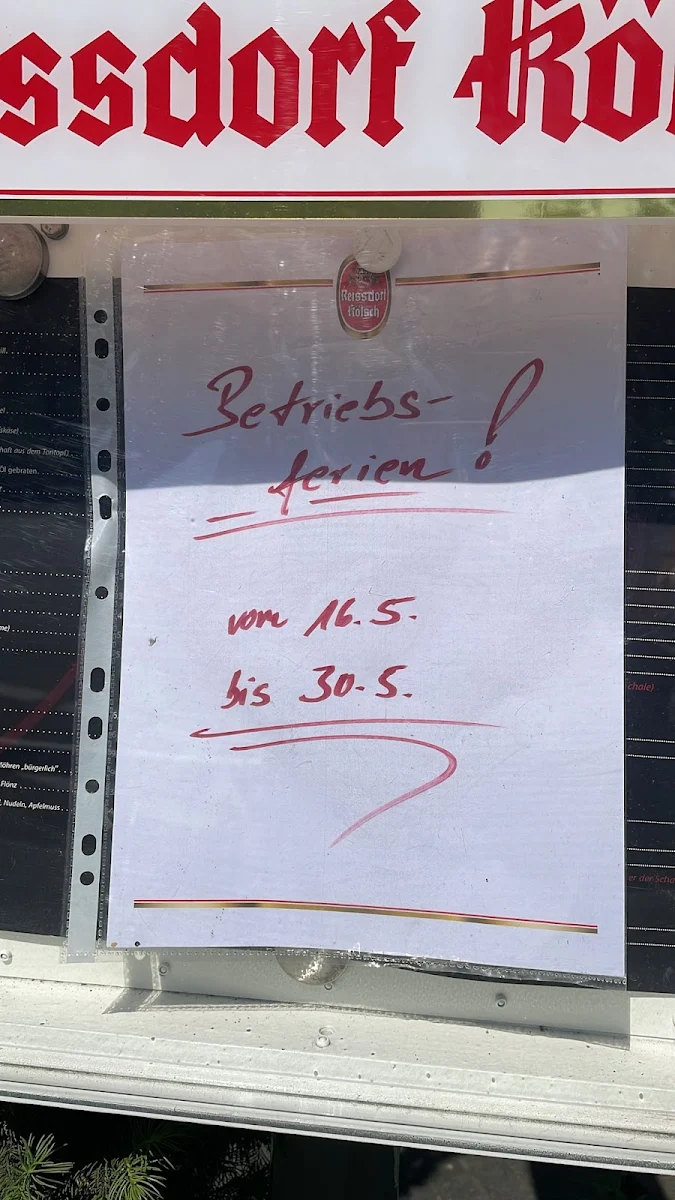 ssdorf Kö
Reissdorf
Kölsch
Betriebs-
ferien!
vom 16.5.
bis 30.5.
haft aus dem Tontopf)
Öl gebraten.
chale)
Möhren „bürgerlich“
Flönz
, Nudeln, Apfelmuss
er der Scha